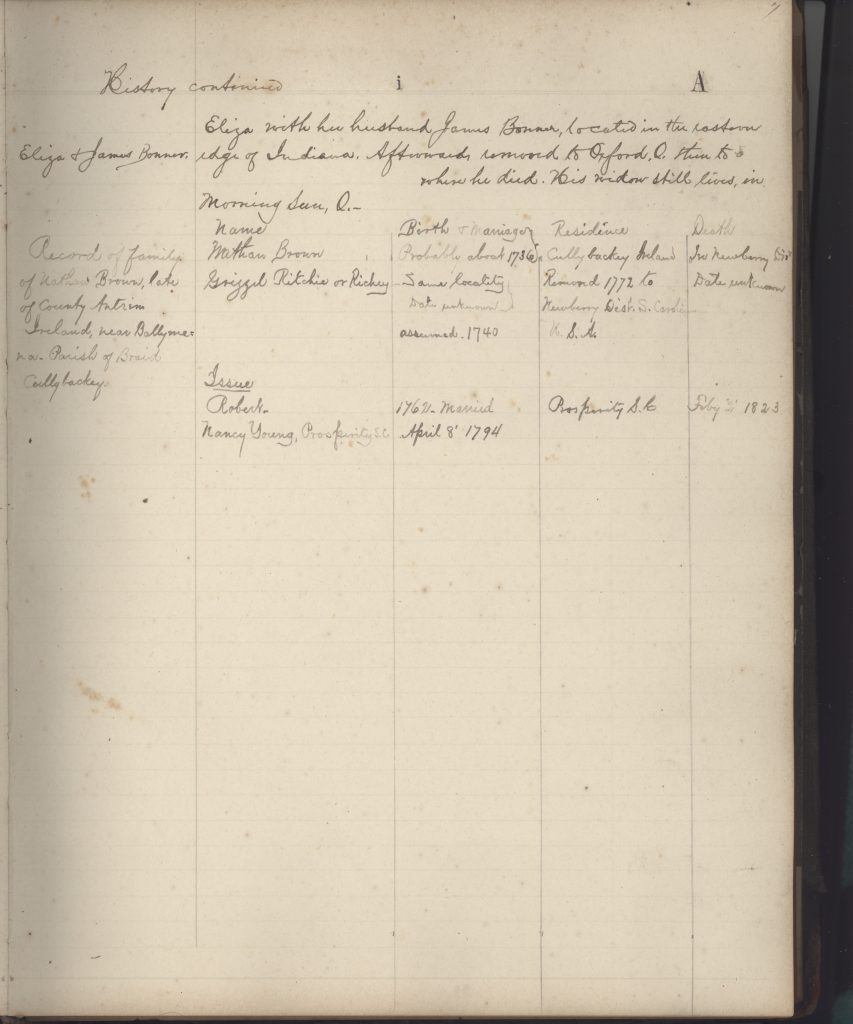 7
History continued i A
Eliza with her husband James Bonner, located in the eastern
Eliza & James Bonner. edge of Indiana. Afterwards removed to Oxford, O. then to
where he died. His widow still lives, in
Morning Sun, O.—
Name Birth & Marriage Residence Death
Record of family Nathan Brown Probable about 1736 Cullybackey Ireland In Newberry Dist
of Nathan Brown, late Grizzel Ritchie or Richey Same locality Removed 1772 to Date unknown
of County Antrim Date unknown Newberry Dist. S. Carolina
Ireland, near Ballyme= assumed. 1740 U. S. A.
na- Parish of Braid
Cullybackey. Issue
Robert- 1762- Married Prosperity S.C Feby 1823
Nancy Young, Prosperity S.C April 8' 1794